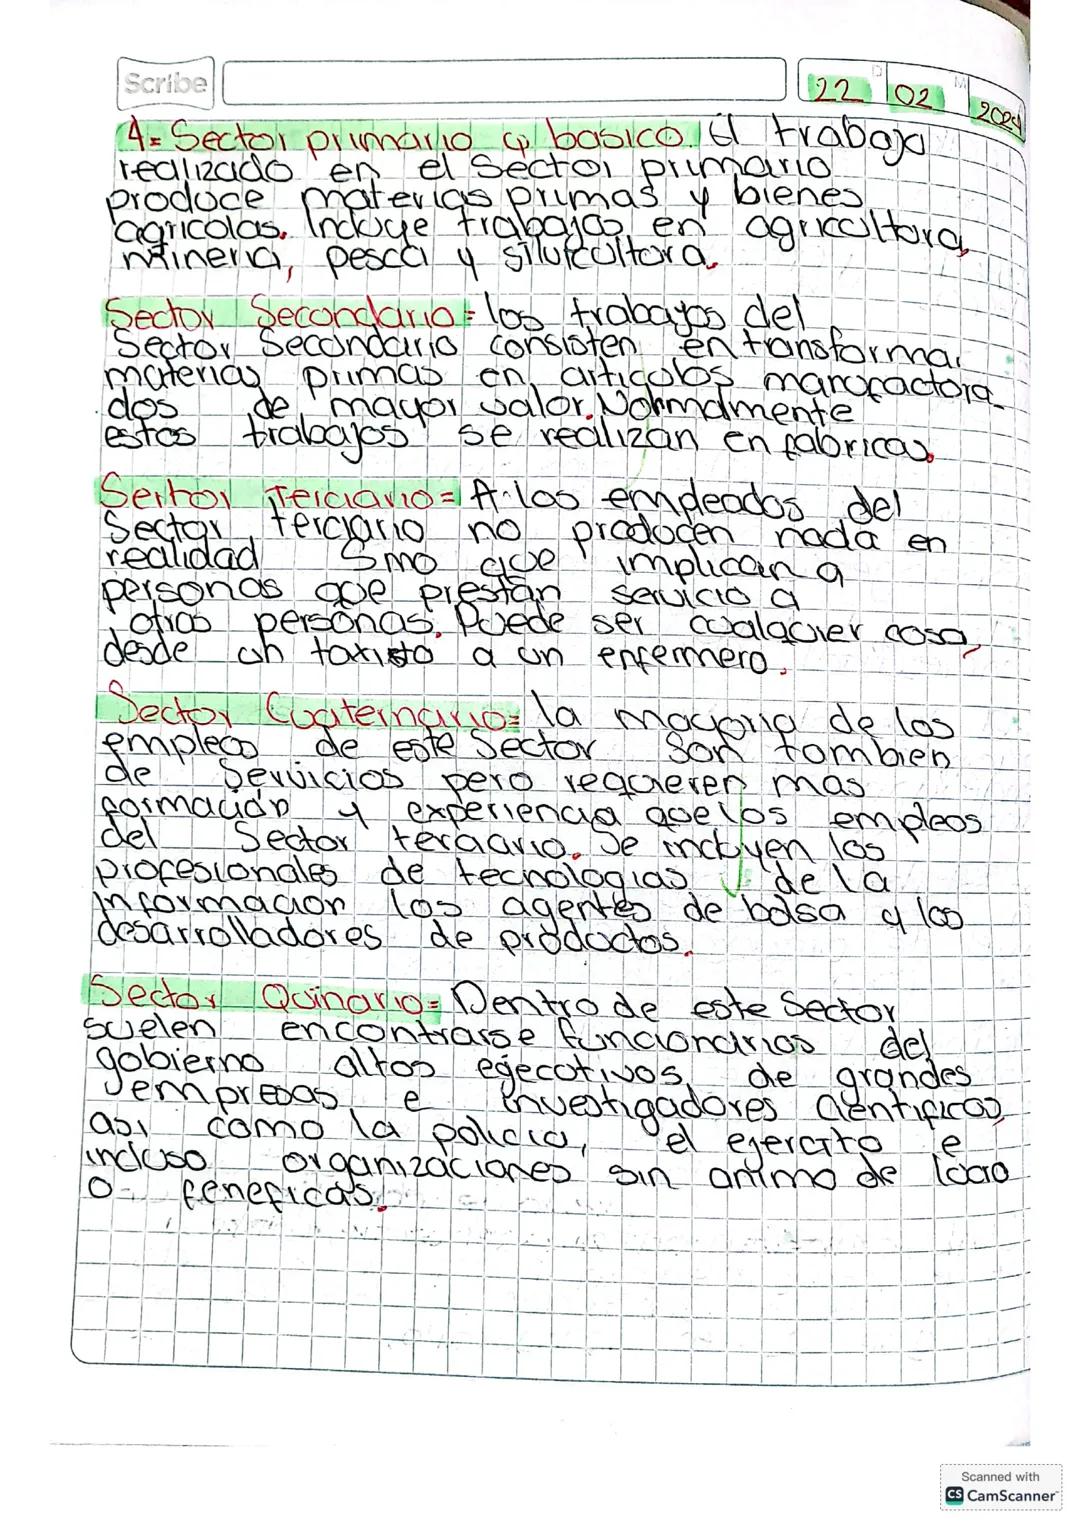 Scribe
D M
22 02 2024
4= Sector primario y basico. El trabajo
realizado en el sector primario
produce materias primas y bienes
agricolas. Incluye trabajos en agricultura,
mineria, pesca y silvicultura.
Sector Secondario= los trabajos del
Sector Secondario consisten en transformar
materias primas en articolos manofactora-
dos de mayor valor. Normalmente
estos trabajos se realizan en fabricas.
Sector Terciario= A los empleados del
Sector terciario no prodocen nada en
realidad Sino que implican a
personas que prestan servicio a
otras personas. Puede ser cualquier cosa,
desde un taxista a un enfermero.
Sector Cuaternario= la mayoria de los
empleos de este Sector son tambien
de Servicios pero requieren mas
formación y experiencia que los empleos
del Sector terciario. Se incluyen los
profesionales de tecnologias de la
informacion los agentes de bolsa y los
desarrolladores de productos.
Sector Quinario= Dentro de este Sector
suelen encontrarse funcionarios del
gobierno altos ejecotivos, de grandes
empresas e investigadores cientificos,
asi como la policia, el ejercito e
incluso organizaciones sin animo de lucro
o feneficas.
Scanned with
CS CamScanner